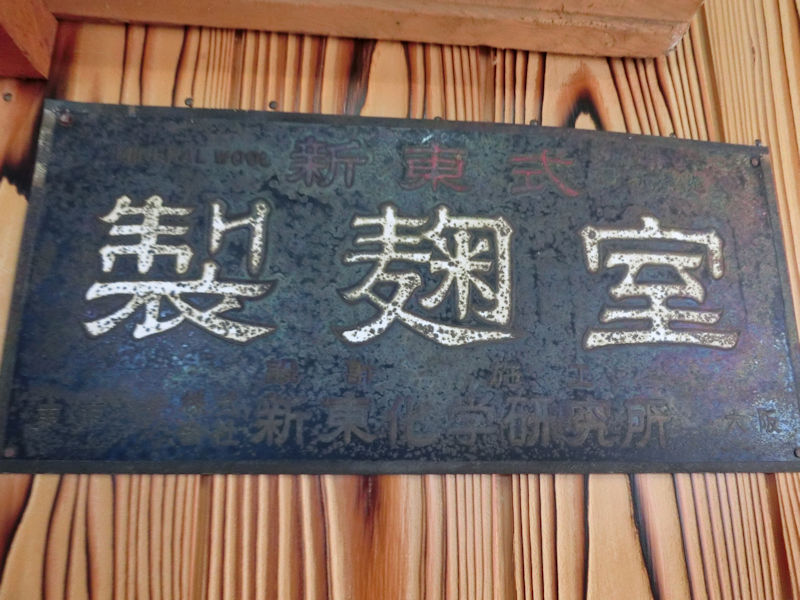 MINERAL WOOL 新東式
製麹室
設計 施工
東京 株式会社 新東化学研究所 大阪